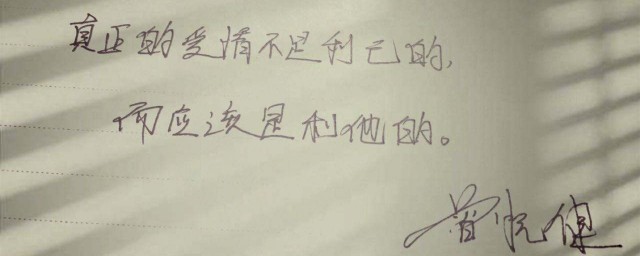 真正的爱情不是利己的,
而应该是利他的。